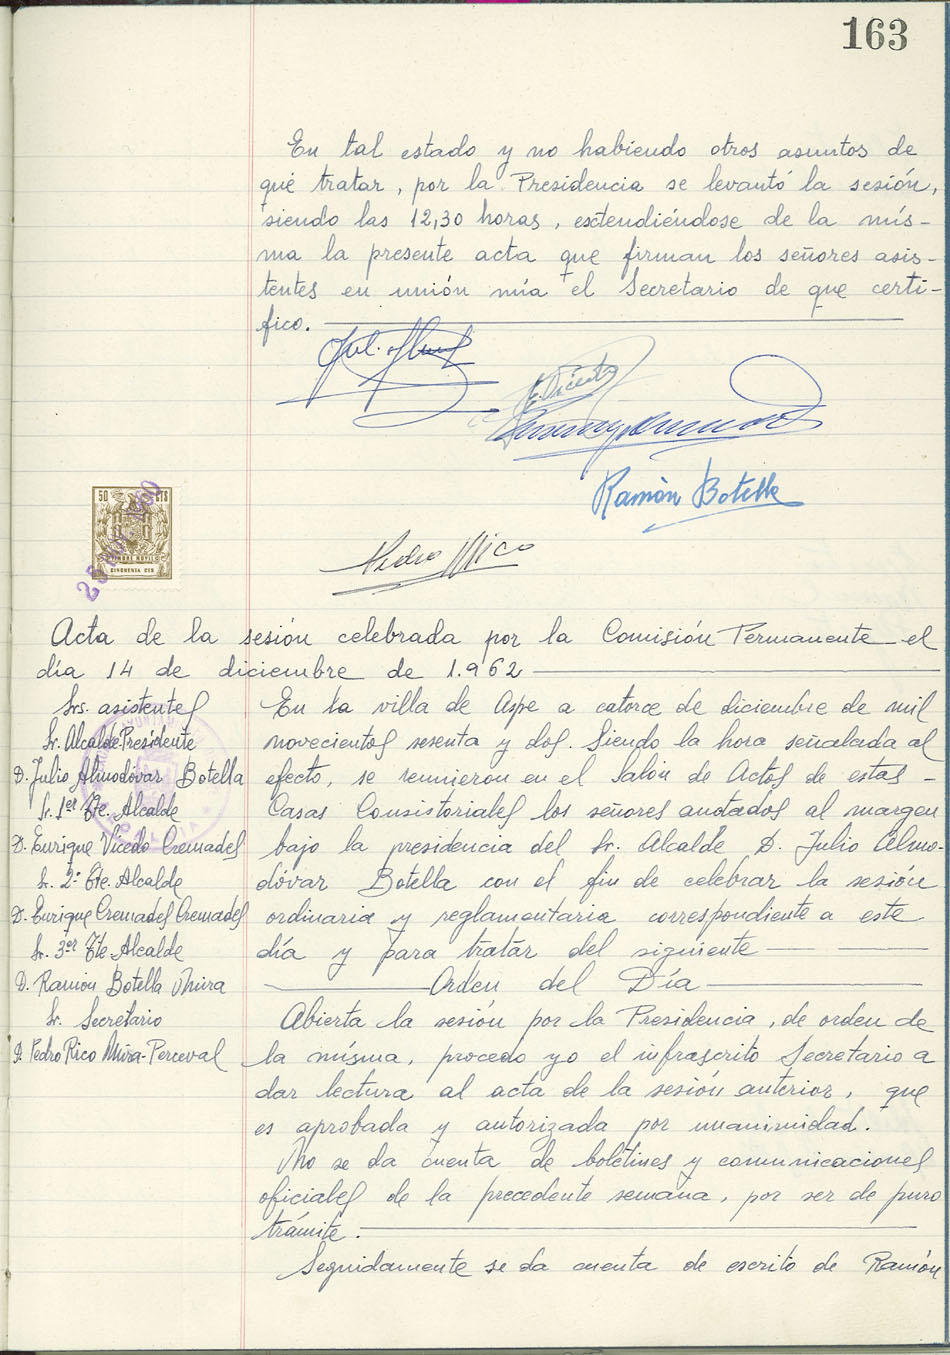 163
En tal estado y no habiendo otros asuntos de
qué tratar, por la Presidencia se levantó la sesión,
siendo las 12,30 horas, extendiéndose de la mís-
ma la presente acta que firman los señores asis-
tentes en unión mía el Secretario de que certi-
fico.
E. Vicedo
Ramón Botella
Pedro Rico
50 CTS
CINCUENTA CTS
Acta de la sesión celebrada por la Comisión Permanente el
día 14 de diciembre de 1.962
Srs. asistentes
Sr. Alcalde Presidente
D. Julio Almodóvar Botella
Sr. 1er Tte. Alcalde
D. Enrique Vicedo Cremades
Sr. 2º Tte. Alcalde
D. Enrique Cremades Cremades
Sr. 3er Tte Alcalde
D. Ramón Botella Mira
Sr. Secretario
D. Pedro Rico Mira-Perceval
En la villa de Aspe a catorce de diciembre de mil
novecientos sesenta y dos. Siendo la hora señalada al
efecto, se reunieron en el Salón de Actos de estas
Casas Consistoriales los señores anotados al margen
bajo la presidencia del Sr. Alcalde D. Julio Almo-
dóvar Botella con el fin de celebrar la sesión
ordinaria y reglamentaria correspondiente a este
día y para tratar del siguiente
Orden del Día
Abierta la sesión por la Presidencia, de orden de
la mísma, procedo yo el infrascrito Secretario a
dar lectura al acta de la sesión anterior, que
es aprobada y autorizada por unanimidad.
No se da cuenta de boletines y comunicaciones
oficiales de la precedente semana, por ser de puro
trámite.
Seguidamente se da cuenta de escrito de Ramón